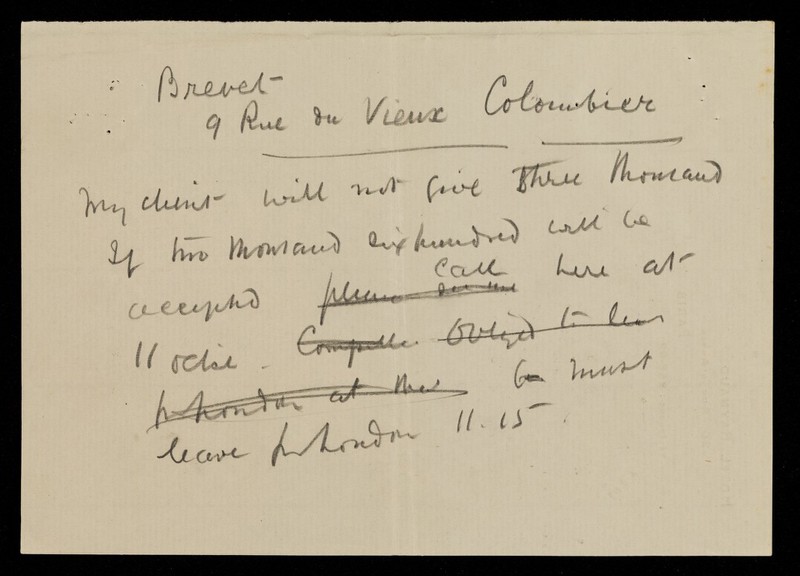 Brevet
9 Rue du Vieux Colombier
My client will not give Three thousand
If two thousand six hundred will be
accepted please see me call here at
11 oclk. Compelled Obliged to leave
for London at three &amp; must
leave for London 11.15